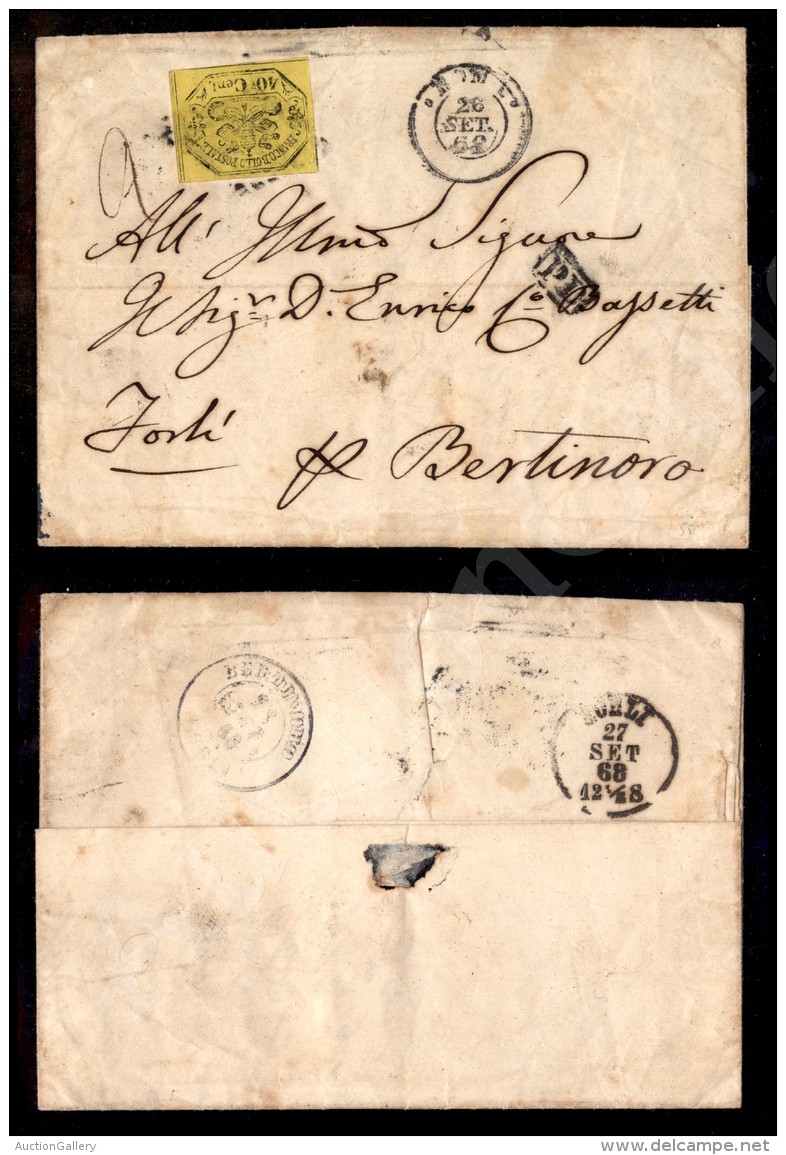 40 Cent.
FRANCO BOLLO POSTALE
ROMA
26
SET.
68
All' Illmo Signore
Il Sigr. D. Enrico Co Bassetti
P.D.
Forlì
p Bertinoro
55
BERTINORO
FORLI
27
SET
68
12 ½ S
AuctionGallery
delcampe.net